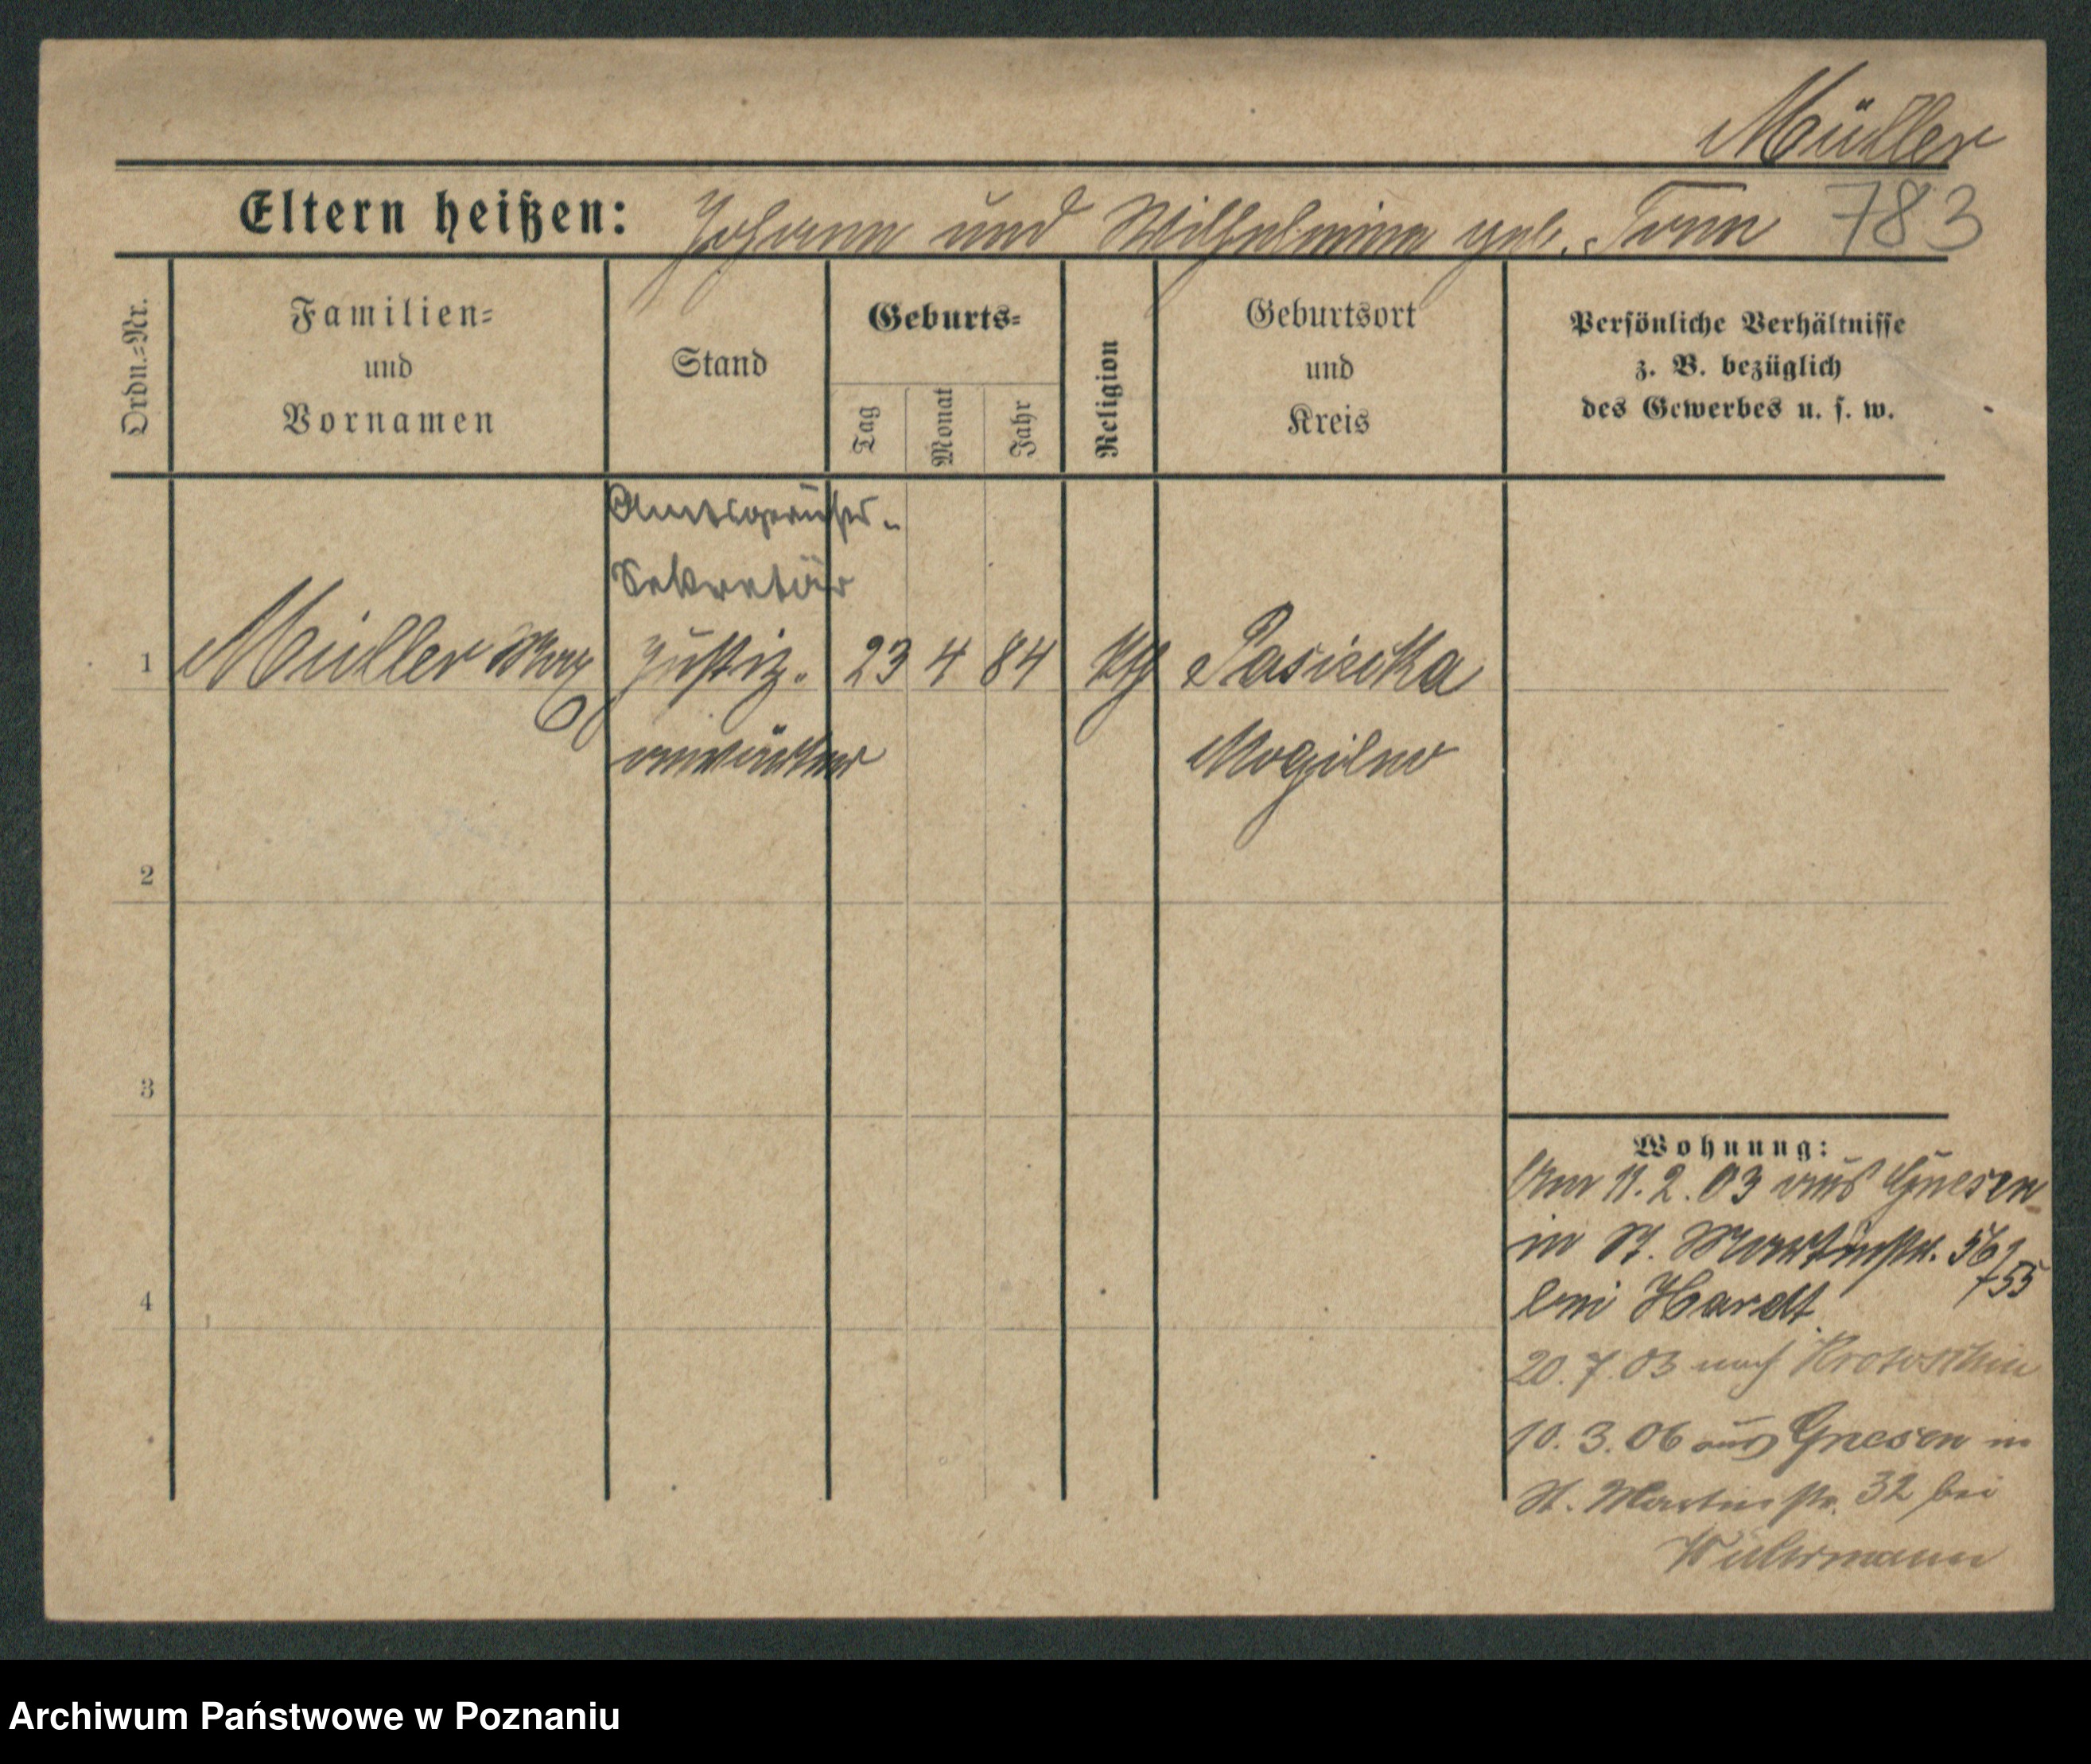 Müller
Eltern heißen: Johann und Wilhelmine geb. Tonn 783
Ordn.=Nr.
Familien=
und
Vornamen
Stand
Geburts=
Tag
Monat
Jahr
Religion
Geburtsort
und
Kreis
Persönliche Verhältnisse
z. B. bezüglich
des Gewerbes u. s. w.
Amtsgerichts-
Sekretär
1 Müller Max Justiz- 23 4 84 kth Pasieka
anwärter Mogilno
2
3
4
Wohnung:
Am 11.2.03 aus Gnesen
in St. Martinstr. 56/55
bei Hardt
20.7.03 nach Krotoschin
10.3.06 aus Gnesen in
St. Martinstr. 32 bei
Archiwum Państwowe w Poznaniu